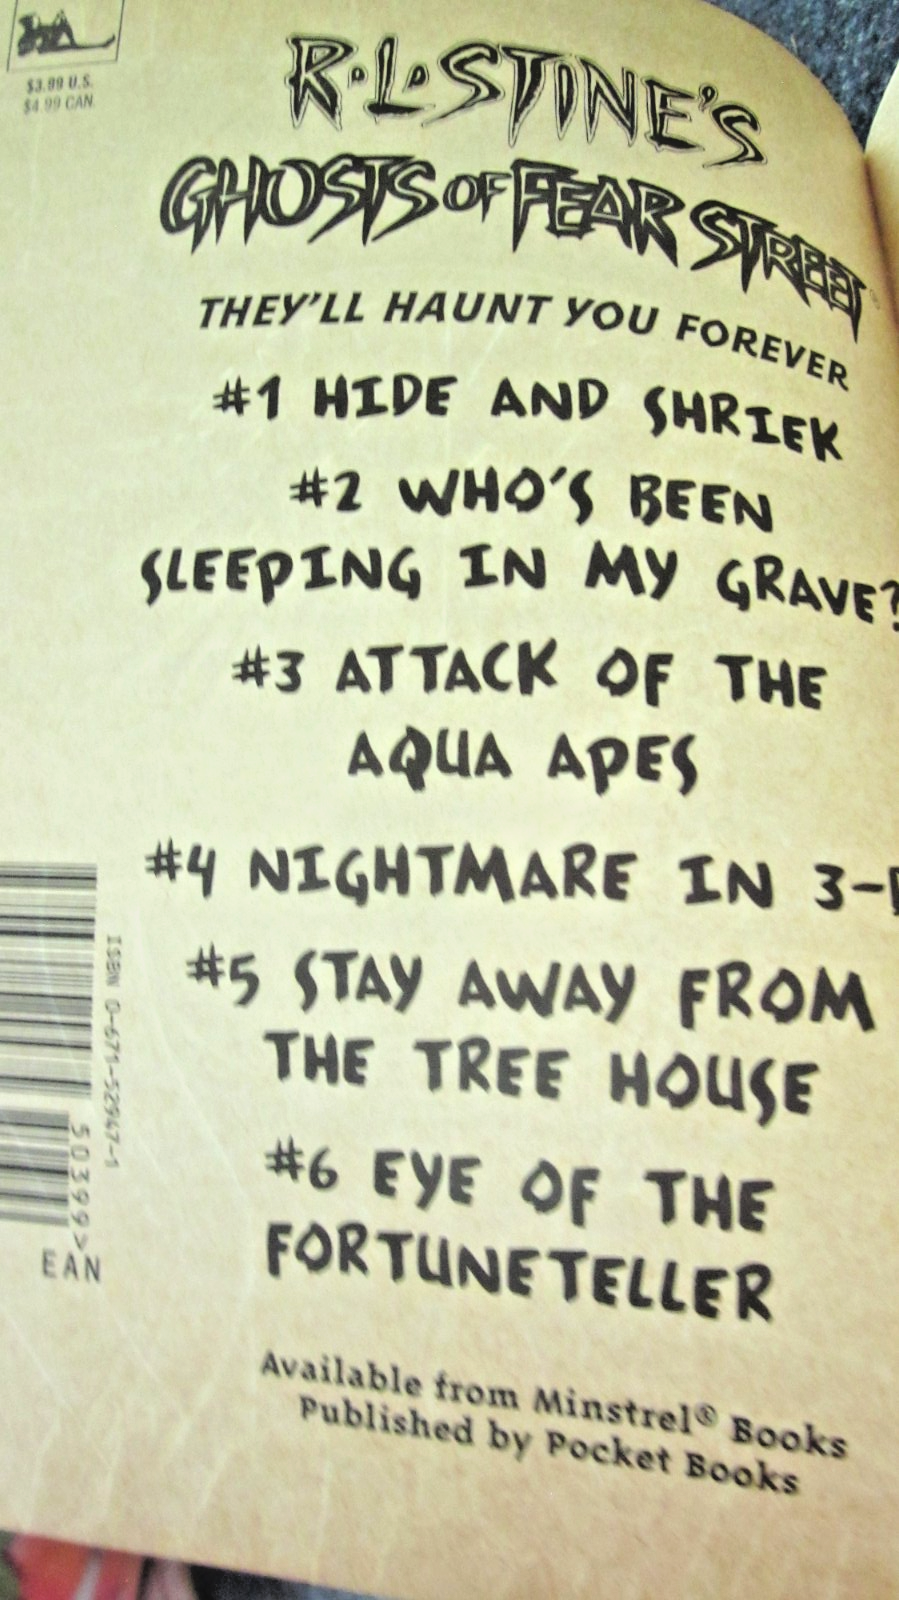 $3.99 U.S.
$4.99 CAN.
R·L·STINE'S
GHOSTS OF FEAR STREET
THEY'LL HAUNT YOU FOREVER
#1 HIDE AND SHRIEK
#2 WHO'S BEEN
SLEEPING IN MY GRAVE?
#3 ATTACK OF THE
AQUA APES
#4 NIGHTMARE IN 3-D
#5 STAY AWAY FROM
THE TREE HOUSE
#6 EYE OF THE
FORTUNETELLER
Available from Minstrel® Books
Published by Pocket Books
ISBN 0-671-52947-1
50399>
EAN